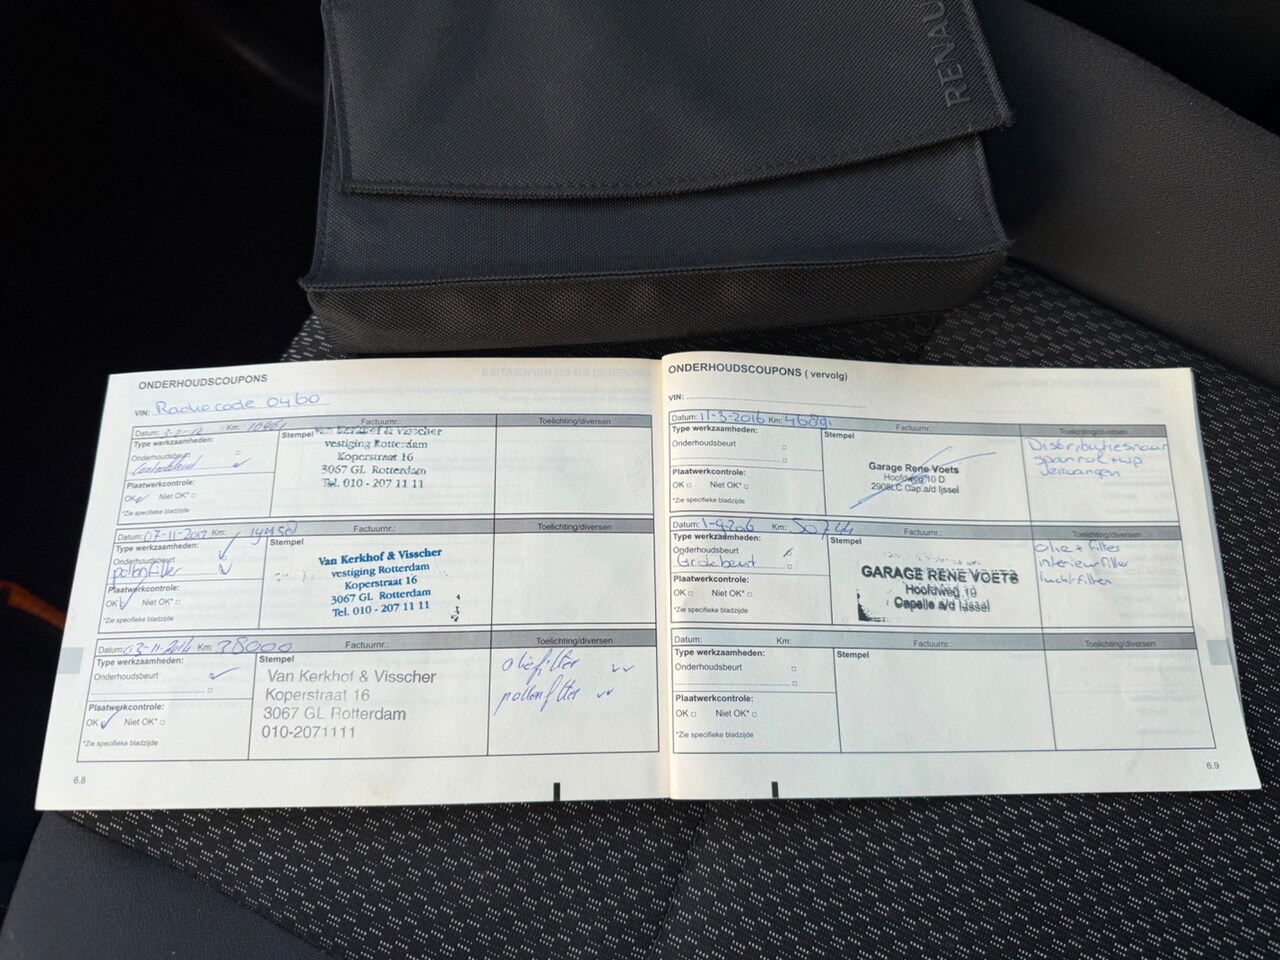 RENAU
ONDERHOUDSCOUPONS
VIN: Radiocode 0460
Datum: Km:
Factuurnr.:
Toelichting/diversen
Type werkzaamheden:
Onderhoudsbeurt
Plaatwerkcontrole:
OK Niet OK*
*Zie specifieke bladzijde
Stempel
Van Kerkhof & Visscher
vestiging Rotterdam
Koperstraat 16
3067 GL Rotterdam
Tel. 010 - 207 11 11
Datum: 07-11-2012 Km:
Factuurnr.:
Toelichting/diversen
Type werkzaamheden:
Onderhoudsbeurt
pollenfilter
Plaatwerkcontrole:
OK Niet OK*
*Zie specifieke bladzijde
Stempel
Van Kerkhof & Visscher
vestiging Rotterdam
Koperstraat 16
3067 GL Rotterdam
Tel. 010 - 207 11 11
Datum: 03-11-2014 Km: 38000
Factuurnr.:
Toelichting/diversen
Type werkzaamheden:
Onderhoudsbeurt
Plaatwerkcontrole:
OK Niet OK*
*Zie specifieke bladzijde
Stempel
Van Kerkhof & Visscher
Koperstraat 16
3067 GL Rotterdam
010-2071111
oliefilter
pollenfilter
6.8
ONDERHOUDSCOUPONS ( vervolg)
VIN:
Datum: 11-3-2016 Km: 46891
Factuurnr.:
Toelichting/diversen
Type werkzaamheden:
Onderhoudsbeurt
Plaatwerkcontrole:
OK Niet OK*
*Zie specifieke bladzijde
Stempel
Garage Rene Voets
Hoofdweg 10 D
2908LC Cap.a/d Ijssel
Distributiesnaar
spanrol + wp
vervangen
Datum: 1-9-2016 Km: 50744
Factuurnr.:
Toelichting/diversen
Type werkzaamheden:
Onderhoudsbeurt
Grote beurt
Plaatwerkcontrole:
OK Niet OK*
*Zie specifieke bladzijde
Stempel
GARAGE RENE VOETS
Hoofdweg 10
Capelle a/d Ijssel
olie + filter
interieurfilter
luchtfilter
Datum: Km:
Factuurnr.:
Toelichting/diversen
Type werkzaamheden:
Onderhoudsbeurt
Plaatwerkcontrole:
OK Niet OK*
*Zie specifieke bladzijde
Stempel
6.9